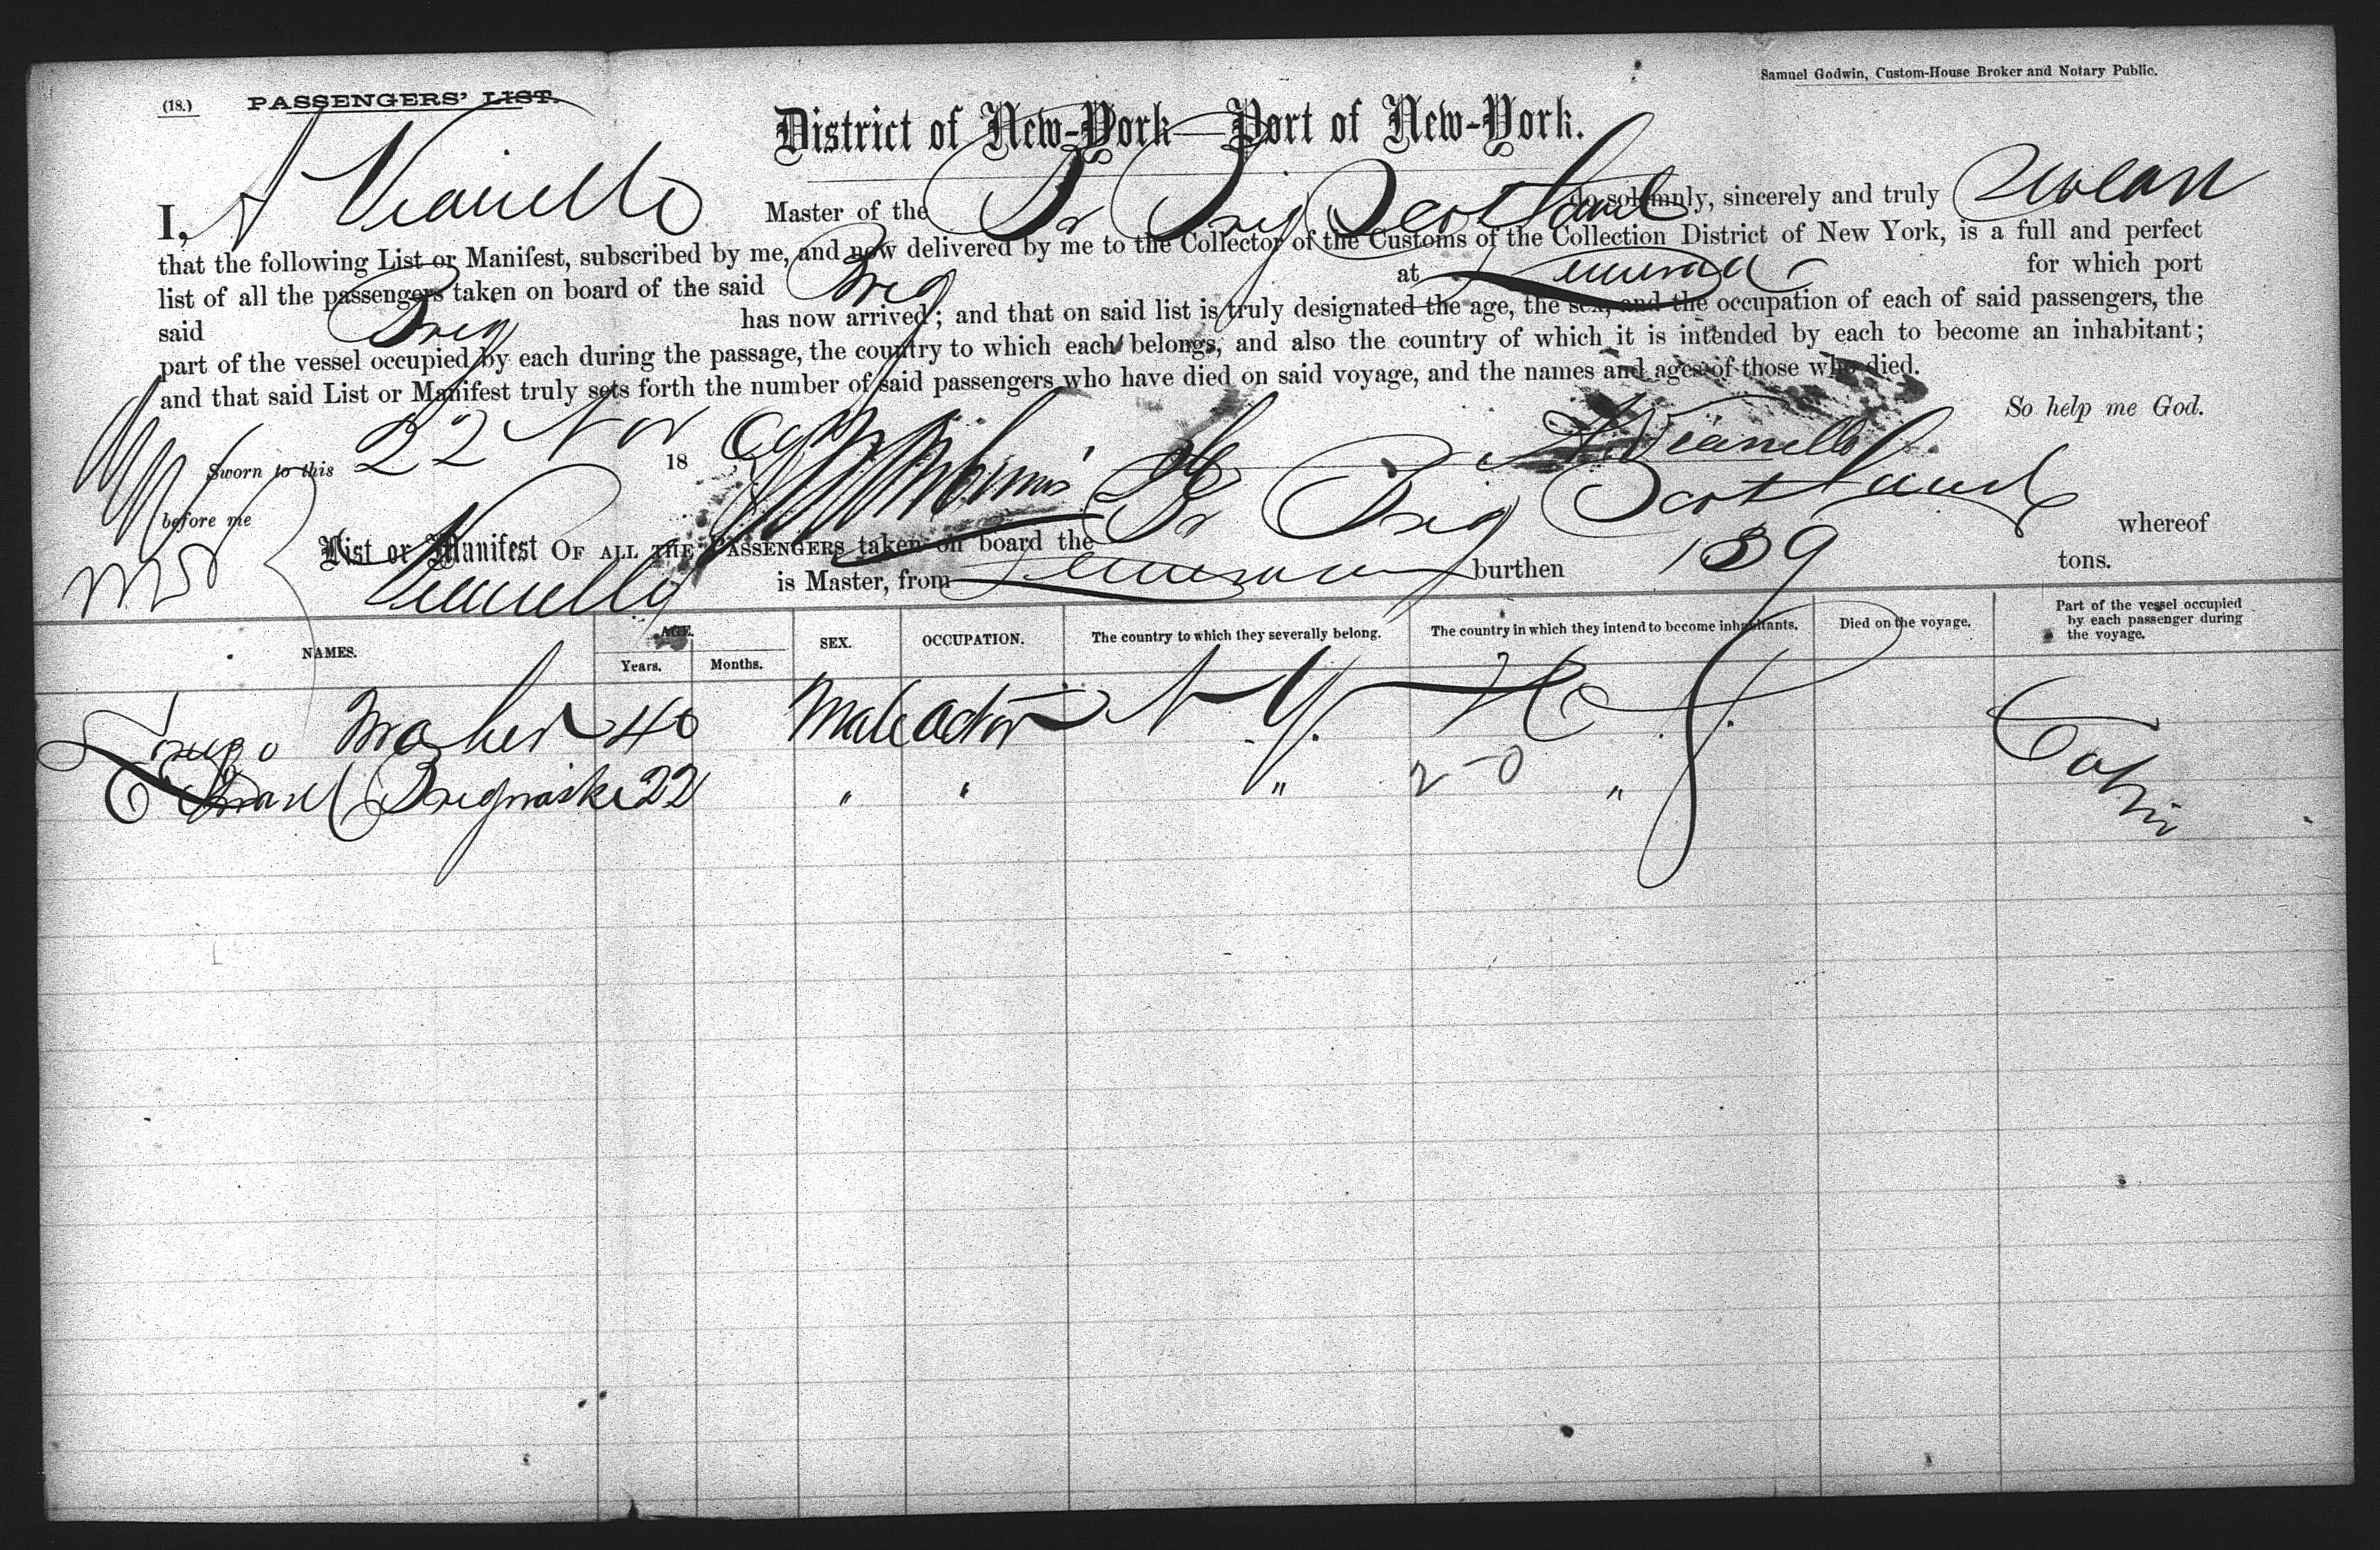 Samuel Godwin, Custom-House Broker and Notary Public.
(18.) PASSENGERS' LIST.
District of New-York—Port of New-York.
I, A Vianello Master of the Br Brig Scotland do solemnly, sincerely and truly swear
that the following List or Manifest, subscribed by me, and now delivered by me to the Collector of the Customs of the Collection District of New York, is a full and perfect
list of all the passengers taken on board of the said Brig at for which port
said Brig has now arrived; and that on said list is truly designated the age, the sex, and the occupation of each of said passengers, the
part of the vessel occupied by each during the passage, the country to which each belongs, and also the country of which it is intended by each to become an inhabitant;
and that said List or Manifest truly sets forth the number of said passengers who have died on said voyage, and the names and ages of those who died.
So help me God.
Sworn to this 22 Nov 18 69 A Vianello
before me
List or Manifest OF ALL THE PASSENGERS taken on board the Br Brig Scotland whereof
Vianello is Master, from burthen 139 tons.
NAMES. AGE. Years. Months. SEX. OCCUPATION. The country to which they severally belong. The country in which they intend to become inhabitants. Died on the voyage. Part of the vessel occupied by each passenger during the voyage.
40 Male actor N Y. N Y. Cabin
22 " " " 20 "